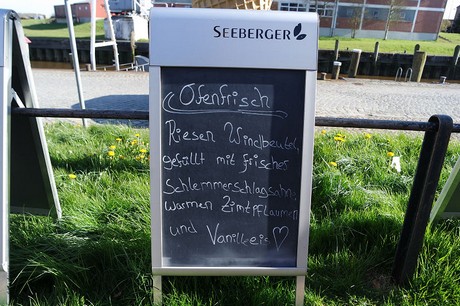 SEEBERGER
Ofenfrisch
Riesen Windbeutel,
gefüllt mit frischer
Schlemmerschlagsahne,
warmen Zimtpflaumen
und Vanilleeis ♡